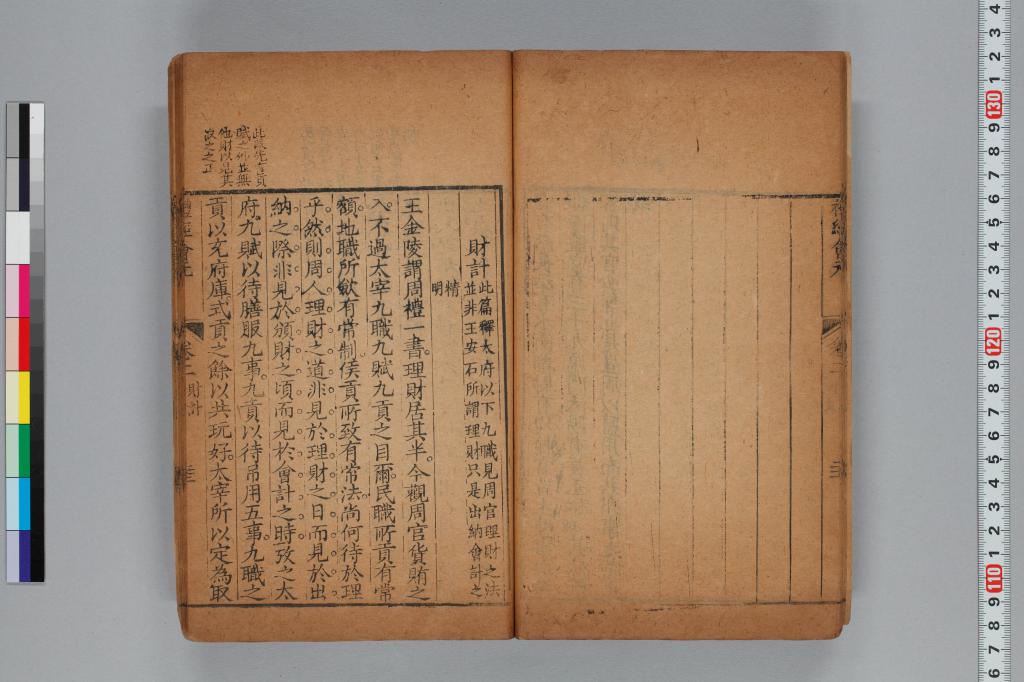 財計此篇釋太府以下九職見周官理財之法
並非王安石所謂理財只是出納會計之
精
明
王金陵謂周禮一書理財居其半今觀周官貨賄之
入不過太宰九職九賦九貢之目爾民職所貢有常
額地職所斂有常制侯貢所致有常法尚何待於理
乎然則周人理財之道非見於理財之日而見於出
納之際非見於頒財之頃而見於會計之時攷之太
府九賦以待膳服九事九貢以待吊用五事九職之
貢以充府庫式貢之餘以共玩好太宰所以定為取
此段先言貢
賦之外並無
他財以見其
取之之正
禮經會元
卷二
財計
禮經會元
4 3 2 1 130 9 8 7 6 5 4 3 2 1 120 9 8 7 6 5 4 3 2 1 110 9 8 7 6